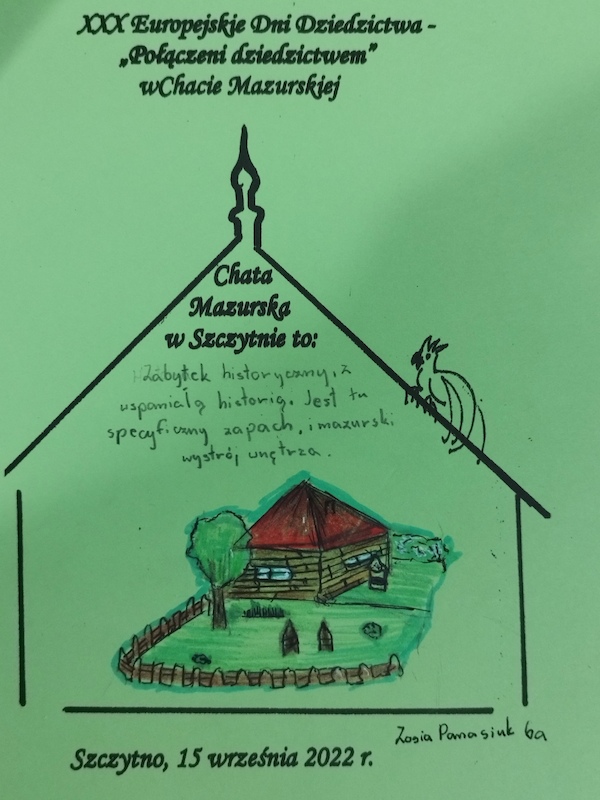 XXX Europejskie Dni Dziedzictwa -
„Połączeni dziedzictwem”
wChacie Mazurskiej
Chata
Mazurska
w Szczytnie to:
Zabytek historyczny, z
wspaniałą historią. Jest tu
specyficzny zapach, i mazurski
wystrój wnętrza.
Zosia Panasiuk 6a
Szczytno, 15 września 2022 r.